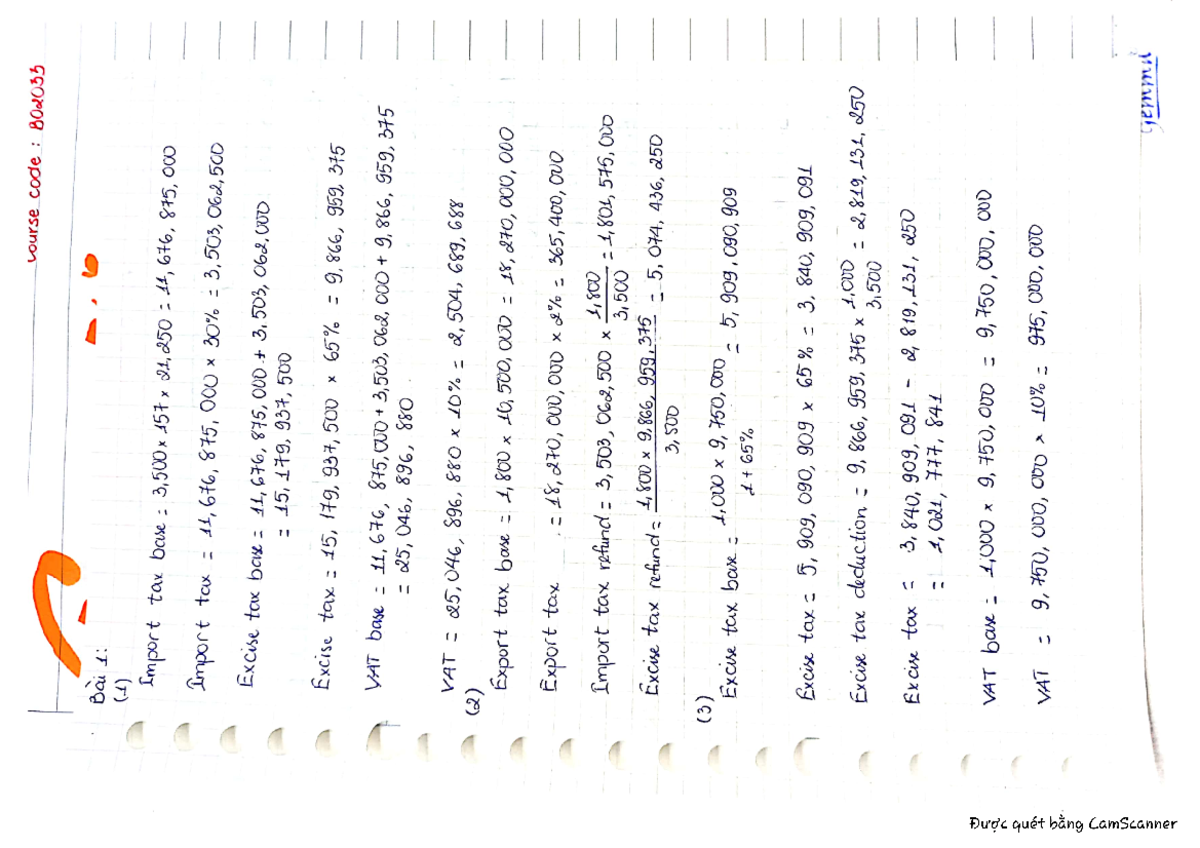 course code : B02033
Bài 1:
(1)
Import tax base = 3,500 x 157 x 21,250 = 11,676,875,000
Import tax = 11,676,875,000 x 30% = 3,503,062,500
Excise tax base = 11,676,875,000 + 3,503,062,000
= 15,179,937,500
Excise tax = 15,179,937,500 x 65% = 9,866,959,375
VAT base = 11,676,875,000 + 3,503,062,000 + 9,866,959,375
= 25,046,896,880
VAT = 25,046,896,880 x 10% = 2,504,689,688
(2)
Export tax base = 1,800 x 10,500,000 = 18,270,000,000
Export tax = 18,270,000,000 x 2% = 365,400,000
Import tax refund = 3,503,062,500 x 1,800 / 3,500 = 1,801,575,000
Excise tax refund = 1,800 x 9,866,959,375 / 3,500 = 5,074,436,250
(3)
Excise tax base = 1,000 x 9,750,000 / 1 + 65% = 5,909,090,909
Excise tax = 5,909,090,909 x 65% = 3,840,909,091
Excise tax deduction = 9,866,959,375 x 1,000 / 3,500 = 2,819,131,250
Excise tax = 3,840,909,091 - 2,819,131,250
= 1,021,777,841
VAT base = 1,000 x 9,750,000 = 9,750,000,000
VAT = 9,750,000,000 x 10% = 975,000,000
Được quét bằng CamScanner